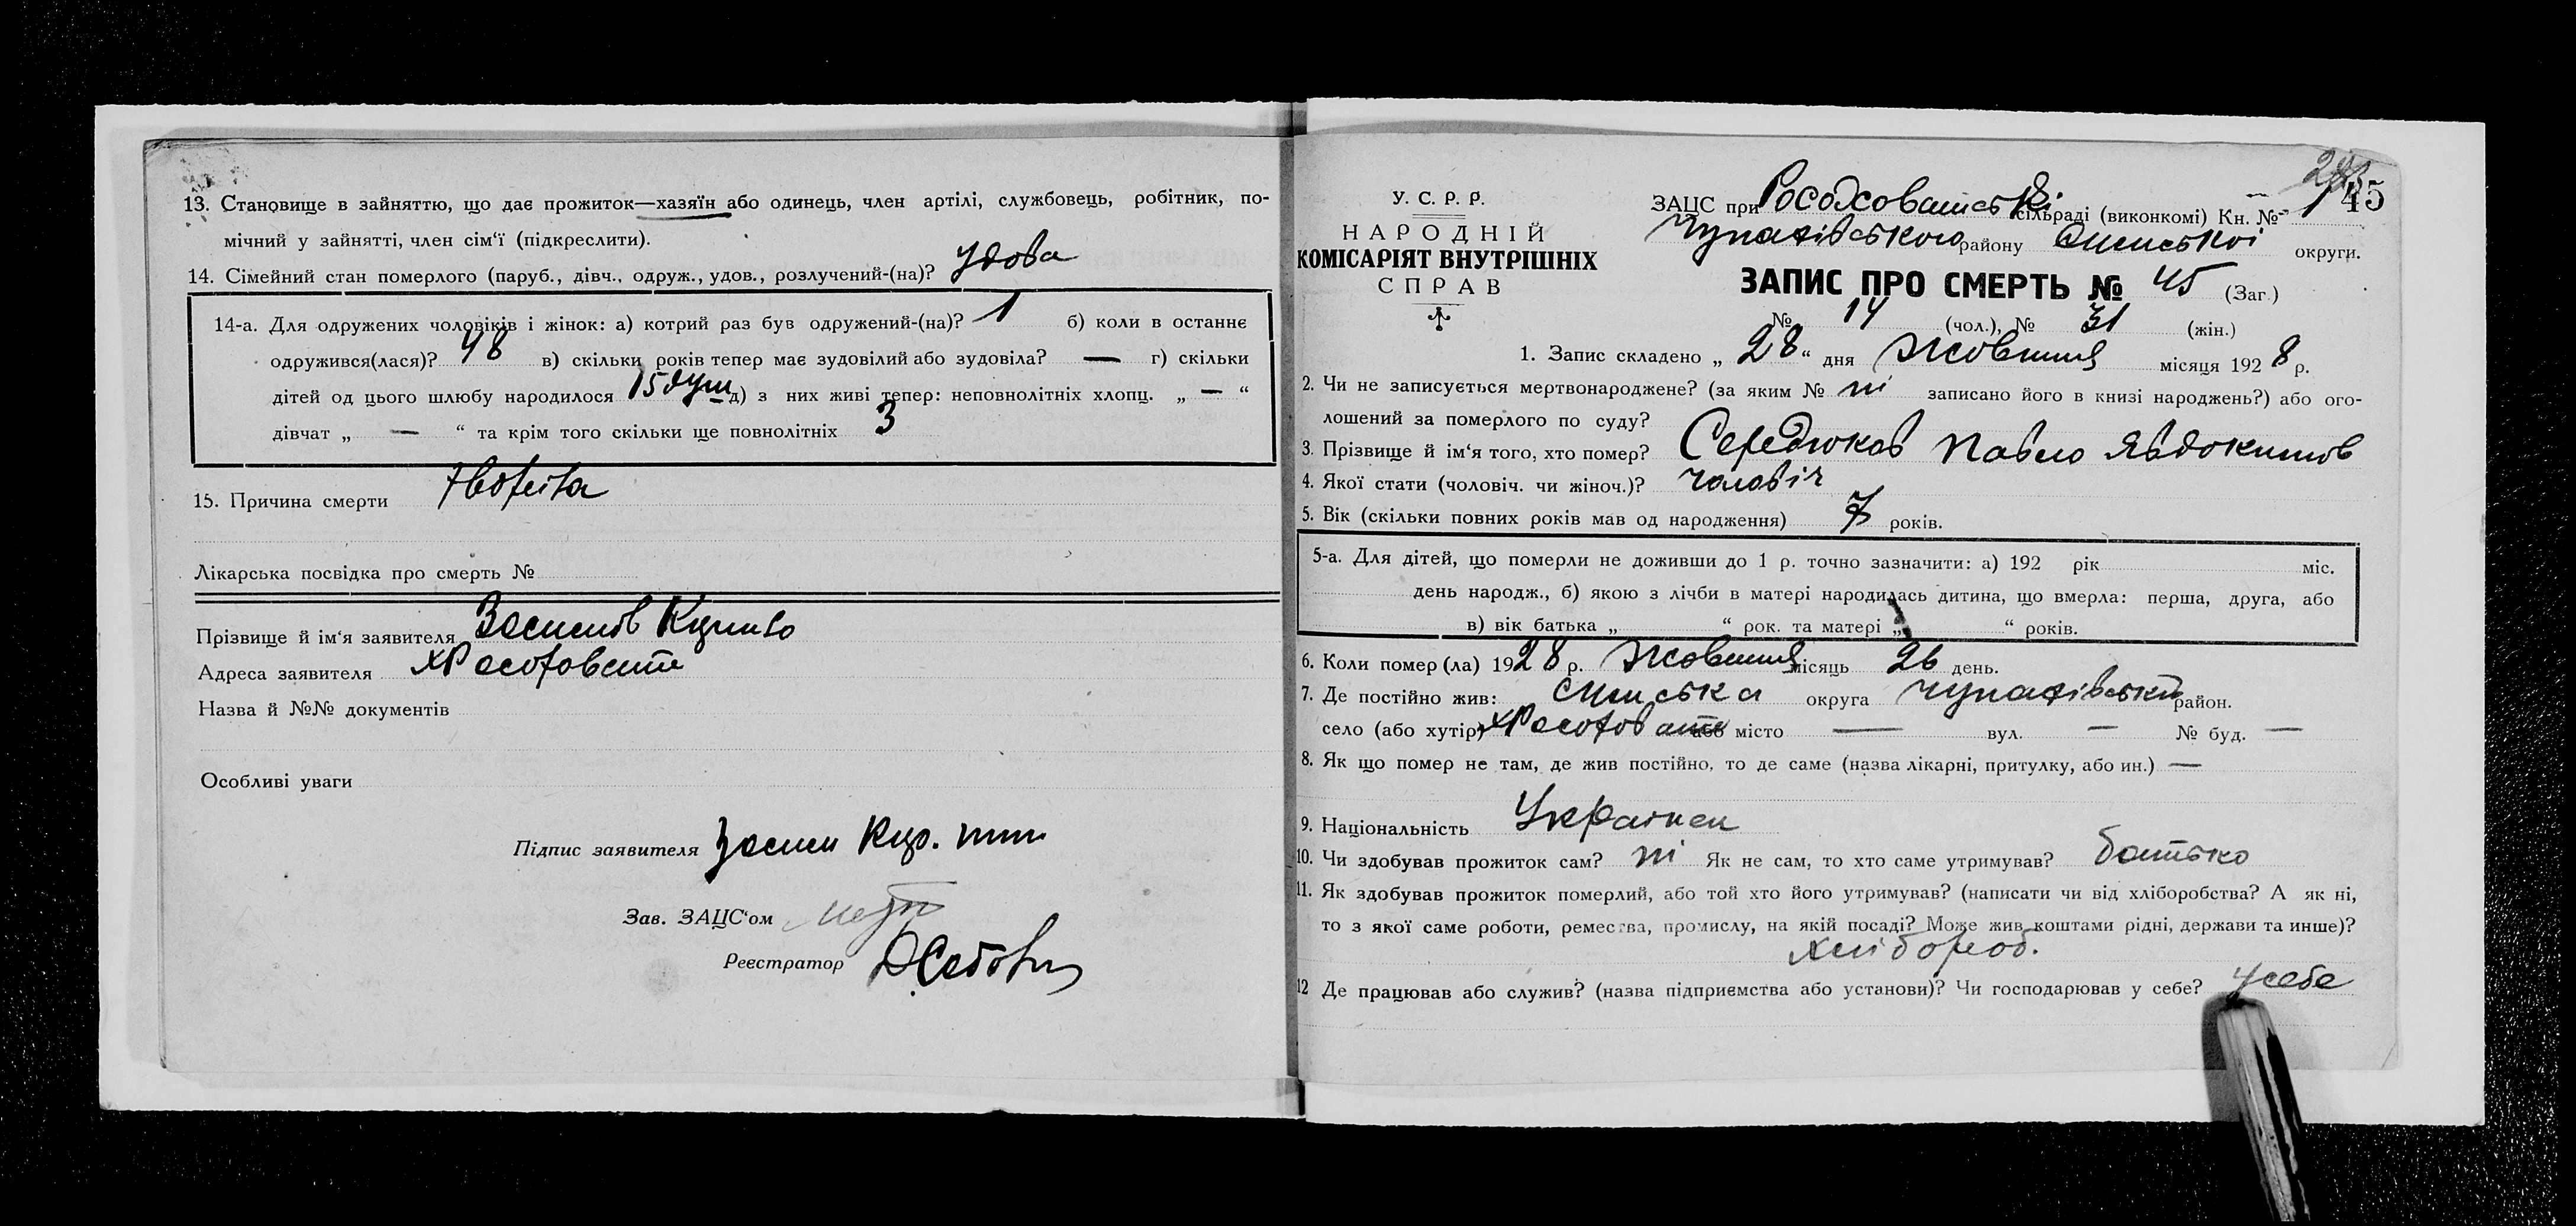 13. Становище в зайняттю, що дає прожиток—хазяїн або одинець, член артілі, службовець, робітник, по-
мічний у зайнятті, член сім‘ї (підкреслити).
14. Сімейний стан померлого (паруб., дівч., одруж., удов., розлучений-(на)? Удова
14-а. Для одружених чоловіків і жінок: а) котрий раз був одружений-(на)? 1 б) коли в останнє
одружився(лася)? 48 в) скільки років тепер має зудовілий або зудовіла? — г) скільки
дітей од цього шлюбу народилося 15 душ д) з них живі тепер: неповнолітніх хлопц. „ — “
дівчат „ — “ та крім того скільки ще повнолітніх 3
15. Причина смерти
Лікарська посвідка про смерть №
Прізвище й ім‘я заявителя
Адреса заявителя
Назва й №№ документів
Особливі уваги
Підпис заявителя
Зав. ЗАЦС‘ом
Реєстратор
У. С. Р. Р.
НАРОДНІЙ
КОМІСАРІЯТ ВНУТРІШНІХ
СПРАВ
45
ЗАЦС при сільраді (виконкомі) Кн. № 1
Чупахівського району округи.
ЗАПИС ПРО СМЕРТЬ № 45 (Заг.)
№ 14 (чол.), № 31 (жін.)
1. Запис складено „ 28 “ дня Жовтня місяця 192 8 р.
2. Чи не записується мертвонароджене? (за яким № ні записано його в книзі народжень?) або ого-
лошений за померлого по суду?
3. Прізвище й ім‘я того, хто помер? Середюков Павло Явдокимов
4. Якої стати (чоловіч. чи жіноч.)? чоловіч
5. Вік (скільки повних років мав од народження) 7 років.
5-а. Для дітей, що померли не доживши до 1 р. точно зазначити: а) 192 рік міс.
день народж., б) якою з лічби в матері народилась дитина, що вмерла: перша, друга, або
в) вік батька „ “ рок. та матері „ “ років.
6. Коли помер (ла) 1928 р. Жовтня місяць 26 день.
7. Де постійно жив: округа Чупахівський район.
село (або хутір) або місто — вул. — № буд. —
8. Як що помер не там, де жив постійно, то де саме (назва лікарні, притулку, або ин.) —
9. Національність Українец
10. Чи здобував прожиток сам? ні Як не сам, то хто саме утримував? батько
11. Як здобував прожиток померлий, або той хто його утримував? (написати чи від хліборобства? А як ні,
то з якої саме роботи, ремества, промислу, на якій посаді? Може жив коштами рідні, держави та инше)?
хлібороб.
12 Де працював або служив? (назва підприємства або установи)? Чи господарював у себе? у себе